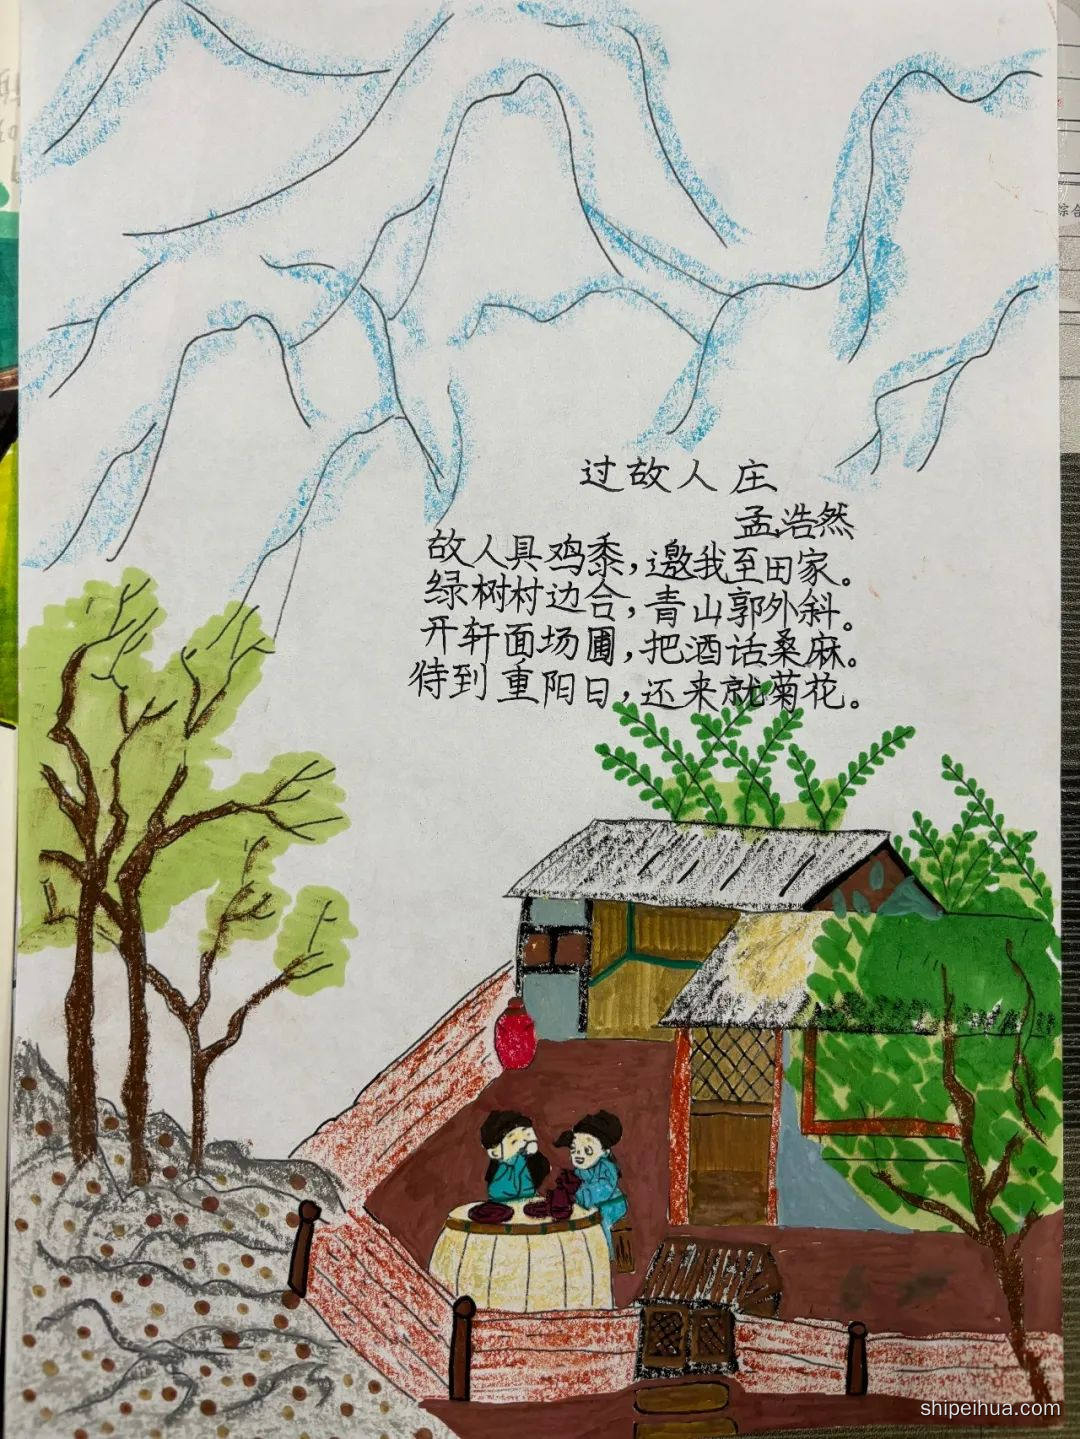 过故人庄
孟浩然
故人具鸡黍，邀我至田家。
绿树村边合，青山郭外斜。
开轩面场圃，把酒话桑麻。
待到重阳日，还来就菊花。
综合
shipeihua.com